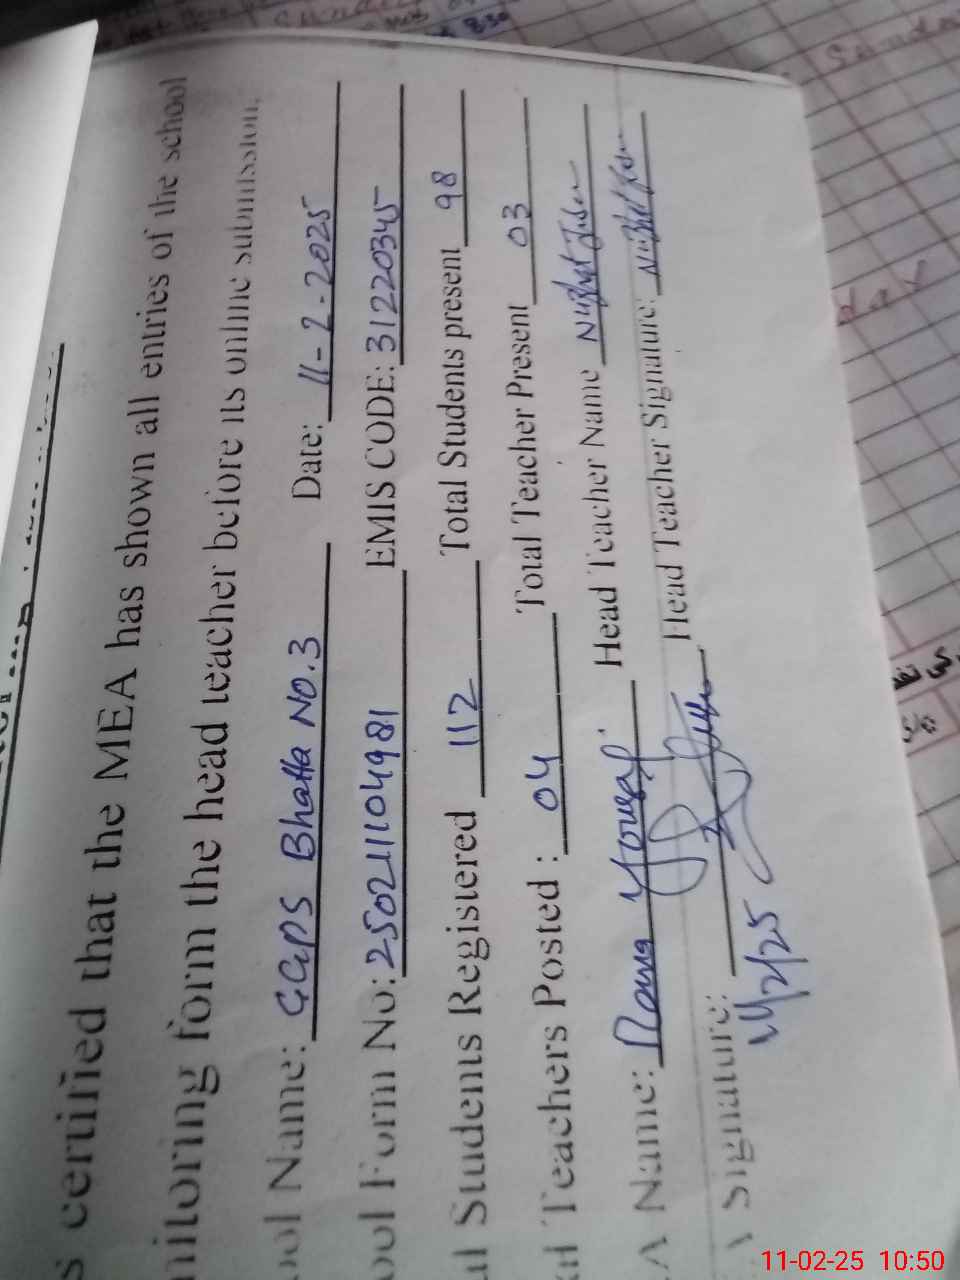 s certified that the MEA has shown all entries of the school
nitoring form the head teacher before its online submission.
ool Name: GGPS Bhatta NO.3 Date: 11-2-2025
ool Form No: 250211104981 EMIS CODE: 31220345
al Students Registered 112 Total Students present 98
al Teachers Posted : 04 Total Teacher Present 03
A Name: Yousaf Head Teacher Name Nighat
A Signature: Head Teacher Signature: Nighat
11/2/25
11-02-25 10:50